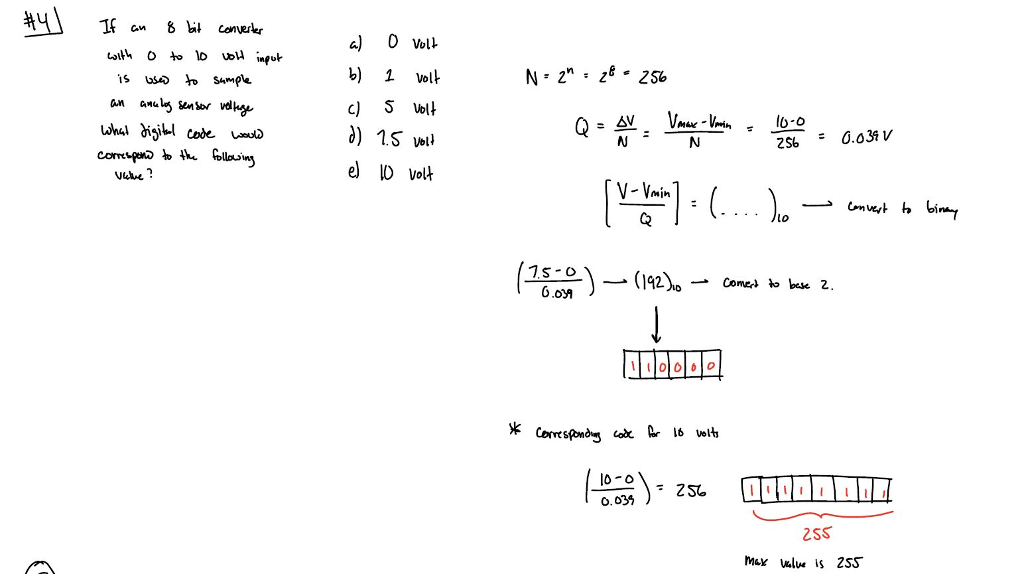 #4
If an 8 bit converter
with 0 to 10 volt input
is used to sample
an analog sensor voltage
What digital code would
correspond to the following
value?
a) 0 Volt
b) 1 volt
c) 5 Volt
d) 7.5 volt
e) 10 volt
N = 2ⁿ = 2⁸ = 256
Q = ΔV/N = (Vmax - Vmin)/N = (10-0)/256 = 0.039 V
[(V - Vmin)/Q] = (....)₁₀ → convert to binary
((7.5 - 0)/0.039) → (192)₁₀ → convert to base 2.
1 1 0 0 0 0
* Corresponding code for 10 volts
((10-0)/0.039) = 256
1 1 1 1 1 1 1 1
255
Max value is 255